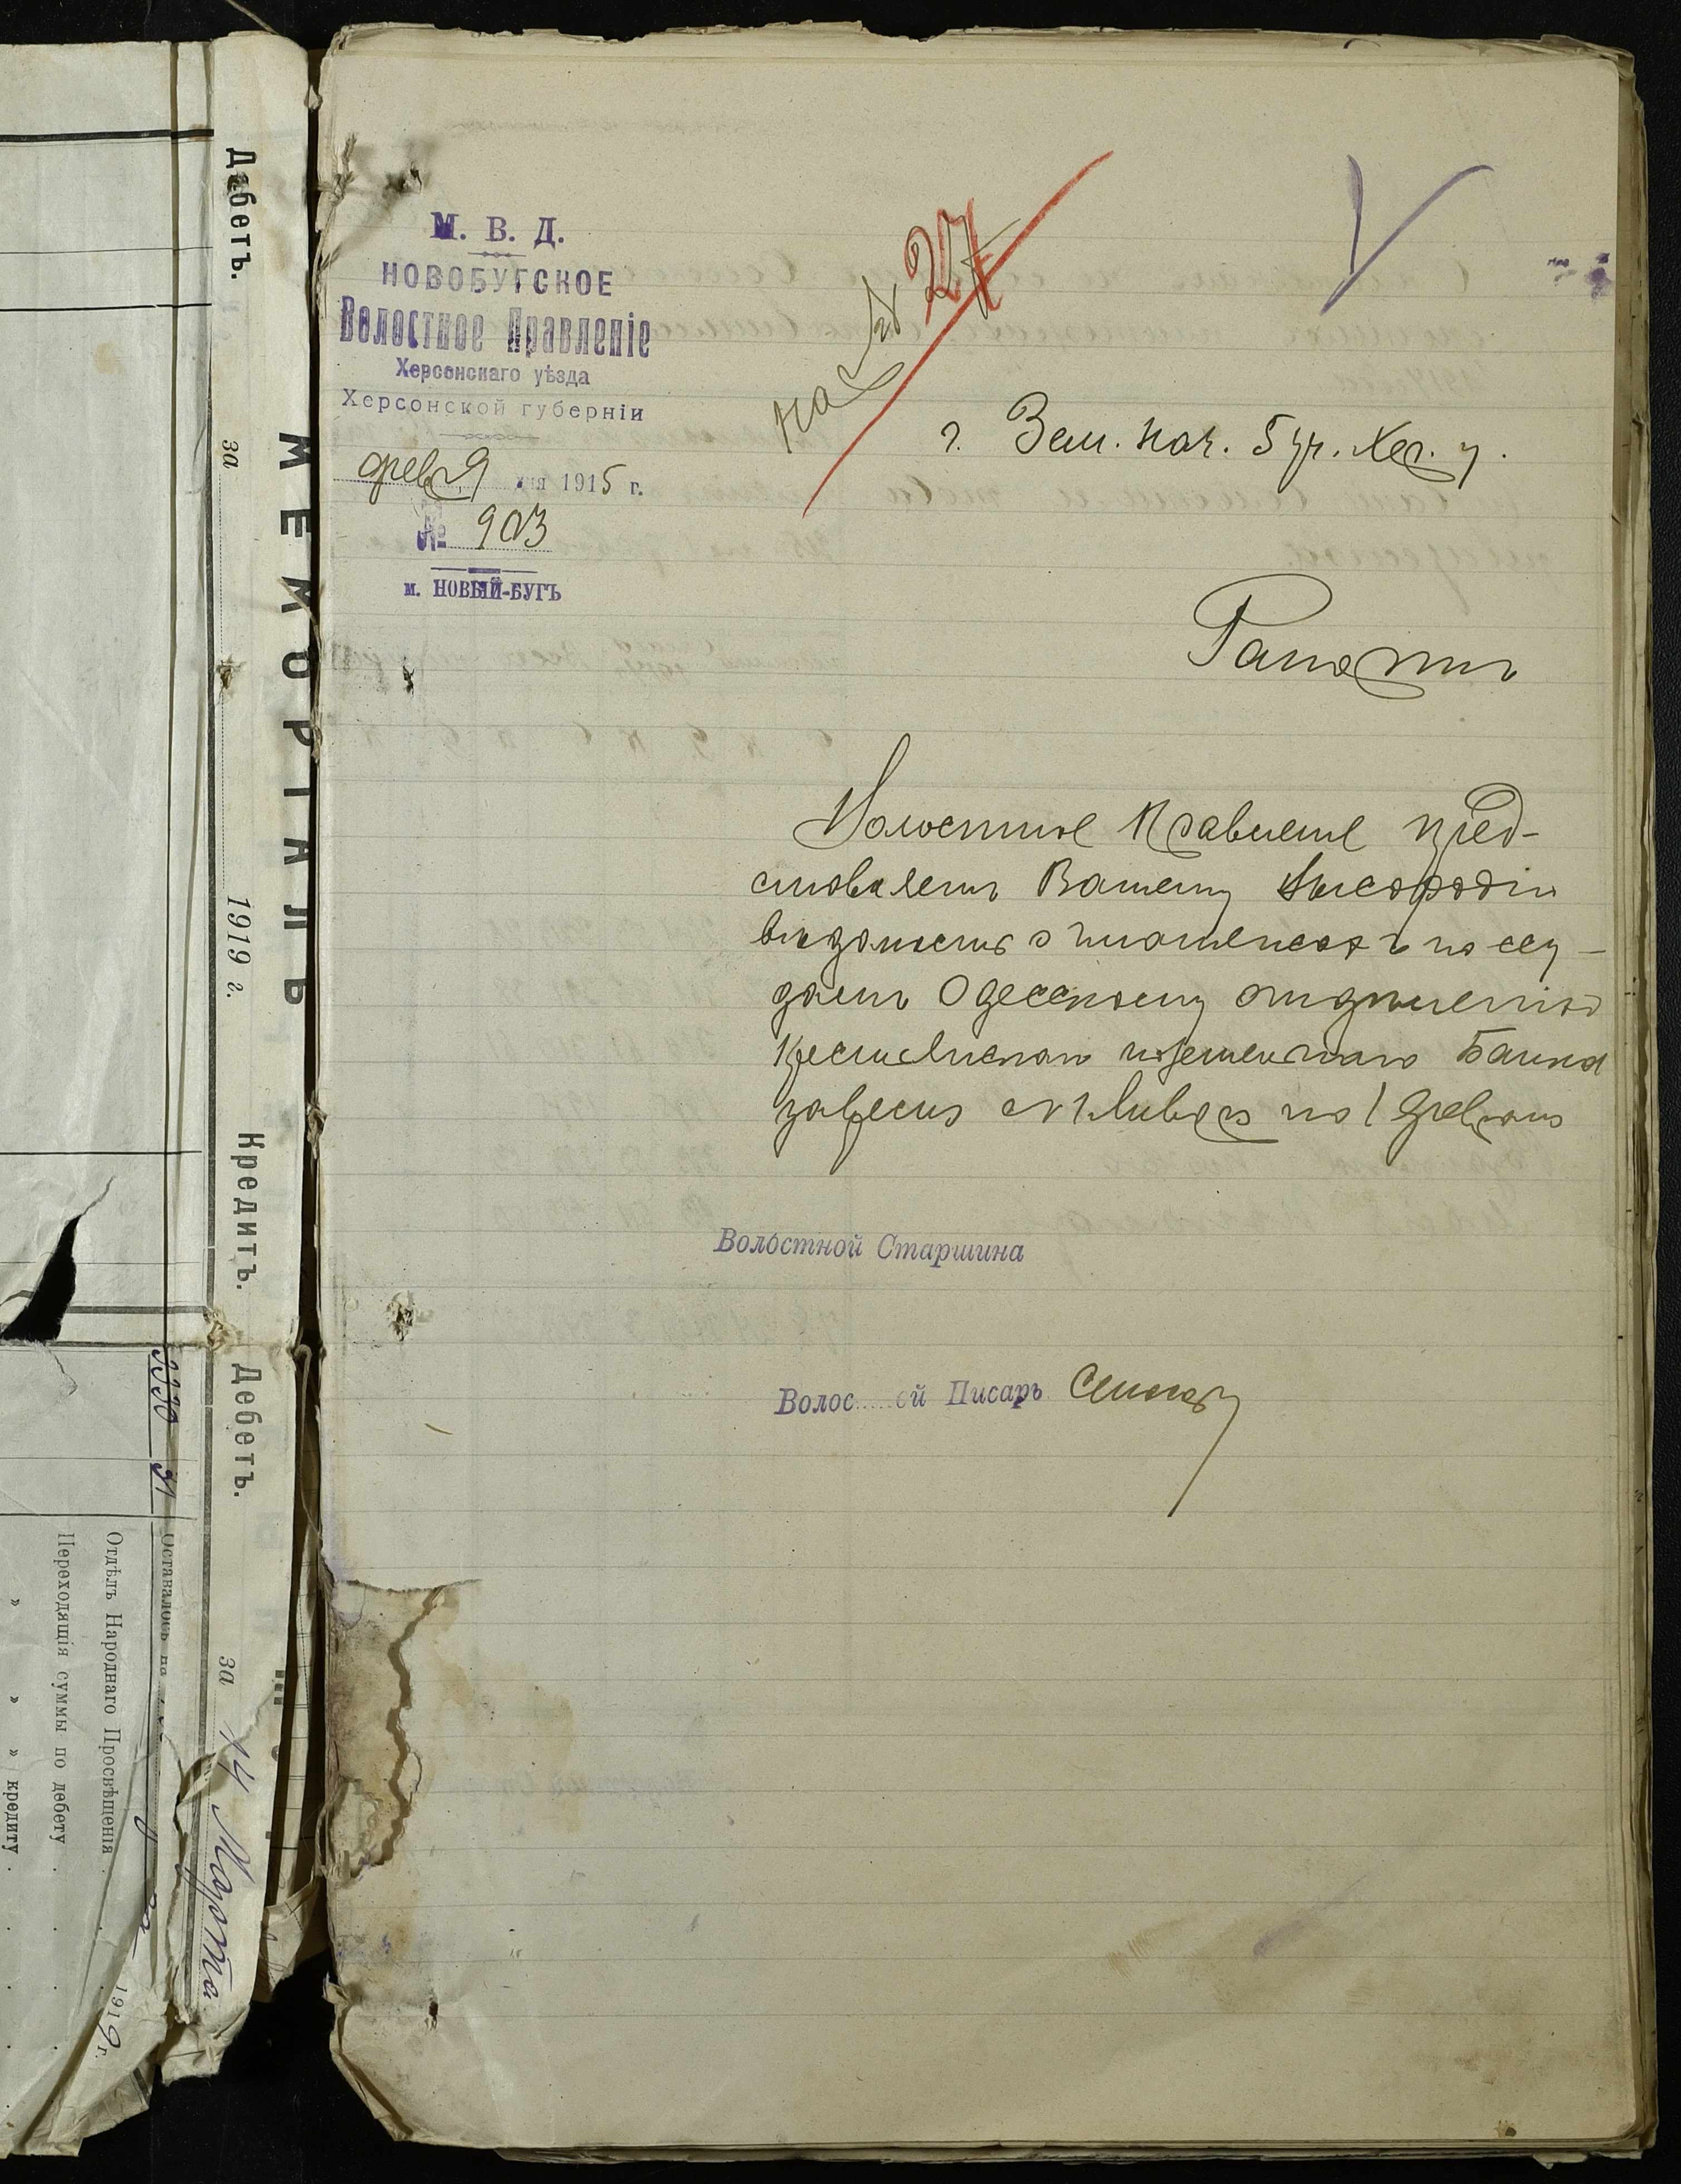 М. В. Д.
НОВОБУГСКОЕ
Волостное Правленіе
Херсонскаго уѣзда
Херсонской губерніи
февр 9 дня 1915 г.
№ 903
м. НОВЫЙ-БУГЪ
27
г. Зем. Нач. 5 уч. Хер. у.
Рапортъ
Волостное Правленіе пред-
ставляетъ Вашему Высокородію
вѣдомость о платежахъ по ссу-
дамъ Одесскому отдѣленію
Крестьянскаго поземельнаго Банка
за время съ 1 Января по 1 Февраля
Волостной Старшина
Волос ой Писарь
МЕМОРІАЛЪ
Дебетъ.
за 1919 г.
Кредитъ.
Дебетъ.
за 14 Марта
3330 31
Оставалось на
1919 г.
Отдѣлъ Народнаго Просвѣщенія
Переходящія суммы по дебету
» » » кредиту